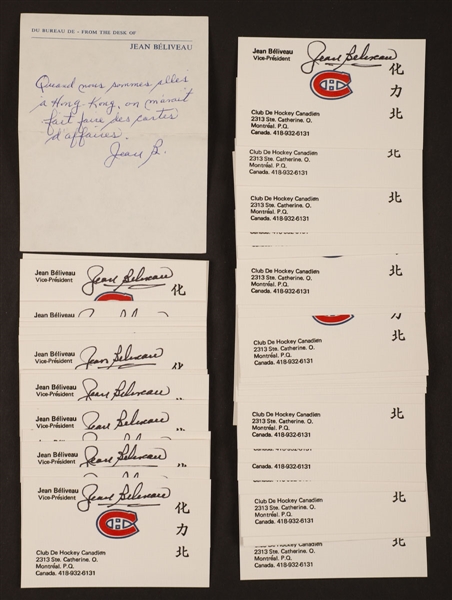 DU BUREAU DE - FROM THE DESK OF
JEAN BÉLIVEAU
Quand nous sommes allés
à Hong Kong, on m'avait
fait faire ses cartes
d'affaires.
Jean B.
Jean Béliveau
Vice-Président
Jean Béliveau
化
Jean Béliveau
Jean Béliveau
Vice-Président
Jean Béliveau
Jean Béliveau
Vice-Président
Jean Béliveau
Jean Béliveau
Vice-Président
Jean Béliveau
Jean Béliveau
Vice-Président
Jean Béliveau
Jean Béliveau
Vice-Président
Jean Béliveau
化
力
北
Club De Hockey Canadien
2313 Ste. Catherine. O.
Montréal. P.Q.
Canada. 418-932-6131
Jean Béliveau
Vice-Président
Jean Béliveau
化
力
北
Club De Hockey Canadien
2313 Ste. Catherine. O.
Montréal. P.Q.
Canada. 418-932-6131
Club De Hockey Canadien
2313 Ste. Catherine. O.
Montréal. P.Q.
Canada. 418-932-6131
北
Club De Hockey Canadien
2313 Ste. Catherine. O.
Montréal. P.Q.
Canada. 418-932-6131
北
Canada. 418-932-6131
Club De Hockey Canadien
2313 Ste. Catherine. O.
Montréal. P.Q.
Canada. 418-932-6131
北
力
Club De Hockey Canadien
2313 Ste. Catherine. O.
Montréal. P.Q.
Canada. 418-932-6131
北
Club De Hockey Canadien
2313 Ste. Catherine. O.
Montréal. P.Q.
Canada. 418-932-6131
北
Canada. 418-932-6131
2313 Ste. Catherine. O.
Montréal. P.Q.
Canada. 418-932-6131
Club De Hockey Canadien
2313 Ste. Catherine. O.
Montréal. P.Q.
Canada. 418-932-6131
北
2313 Ste. Catherine. O.
Montréal. P.Q.
Canada. 418-932-6131
北